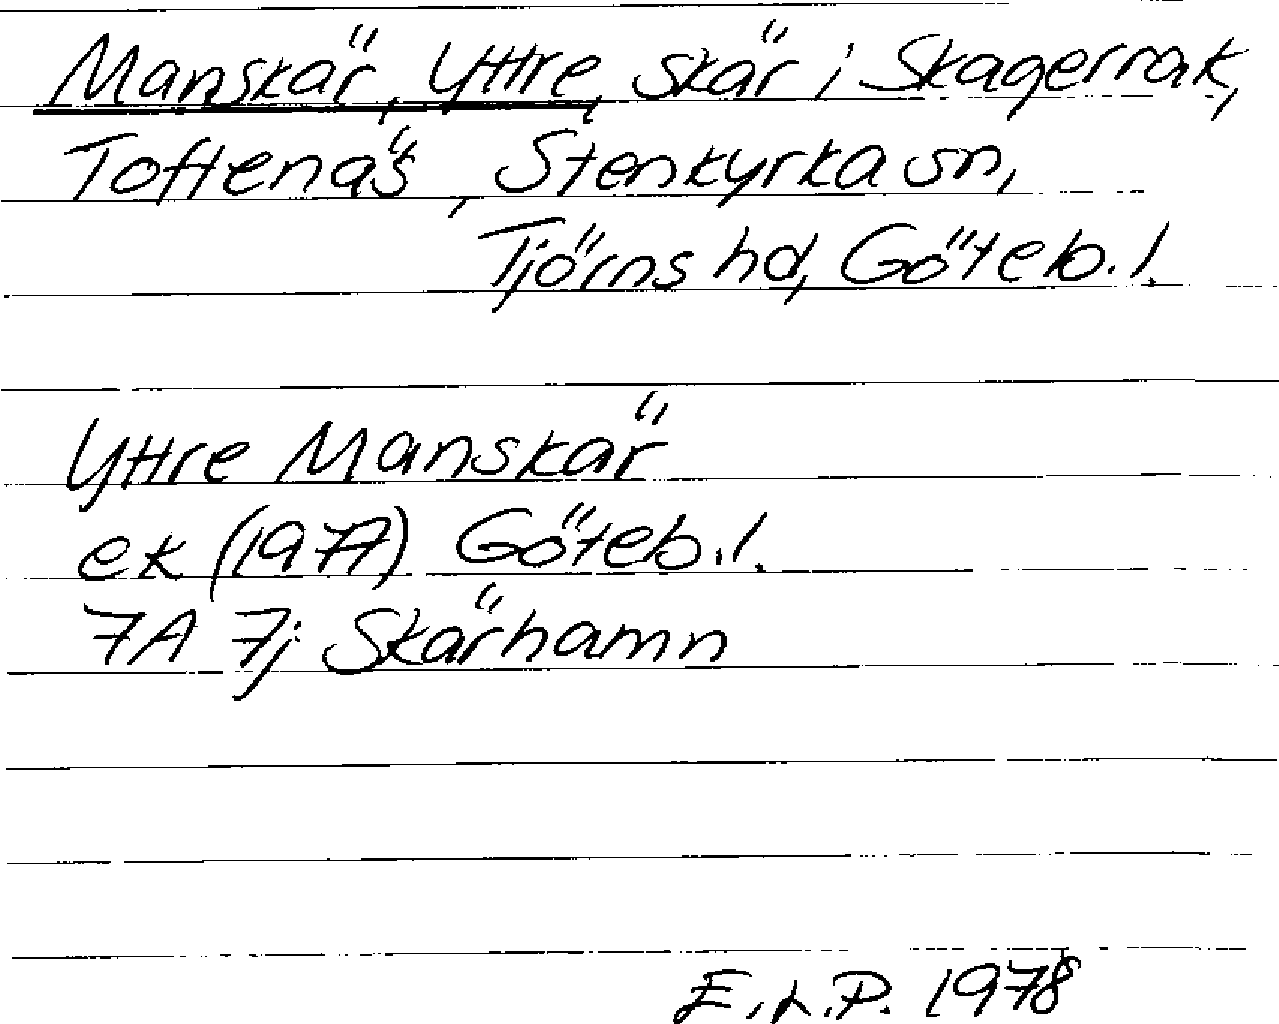 Manskär, Yttre, skär i Skagerrak,
Toftenäs, Stenkyrka sn,
Tjörns hd, Göteb. l.
Yttre Manskär
ek (1977) Göteb. l.
7A 7j Skärhamn
E.L.P. 1978